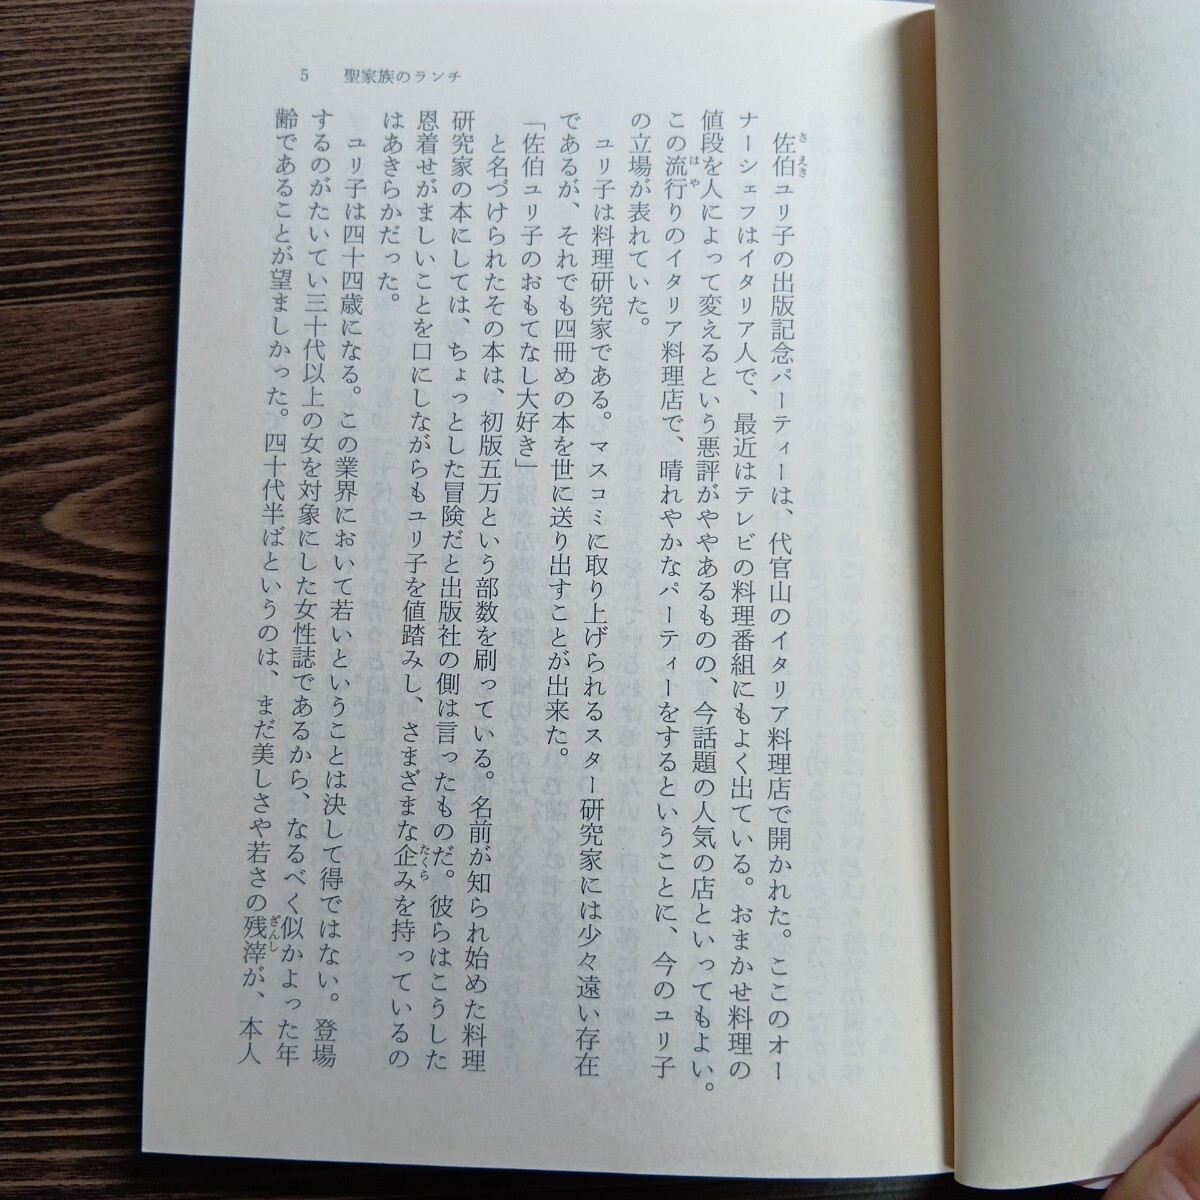 5　聖家族のランチ
　佐伯ユリ子の出版記念パーティーは、代官山のイタリア料理店で開かれた。ここのオー
ナーシェフはイタリア人で、最近はテレビの料理番組にもよく出ている。おまかせ料理の
値段を人によって変えるという悪評がややあるものの、今話題の人気の店といってもよい。
この流行りのイタリア料理店で、晴れやかなパーティーをするということに、今のユリ子
の立場が表れていた。
　ユリ子は料理研究家である。マスコミに取り上げられるスター研究家には少々遠い存在
であるが、それでも四冊めの本を世に送り出すことが出来た。
「佐伯ユリ子のおもてなし大好き」
　と名づけられたその本は、初版五万という部数を刷っている。名前が知られ始めた料理
研究家の本にしては、ちょっとした冒険だと出版社の側は言ったものだ。彼らはこうした
恩着せがましいことを口にしながらもユリ子を値踏みし、さまざまな企みを持っているの
はあきらかだった。
　ユリ子は四十四歳になる。この業界において若いということは決して得ではない。登場
するのがたいてい三十代以上の女を対象にした女性誌であるから、なるべく似かよった年
齢であることが望ましかった。四十代半ばというのは、まだ美しさや若さの残滓が、本人